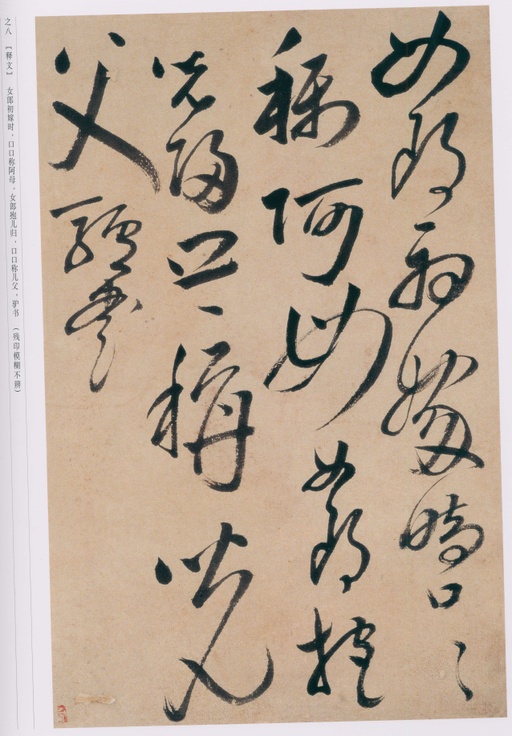 女郎初嫁時口〻
称阿母女郎抱
兒歸口〻稱兒
父驢書
之八 【释文】 女郎初嫁时，口口称阿母。女郎抱儿归，口口称儿父。驴书 （残印模糊不辨）